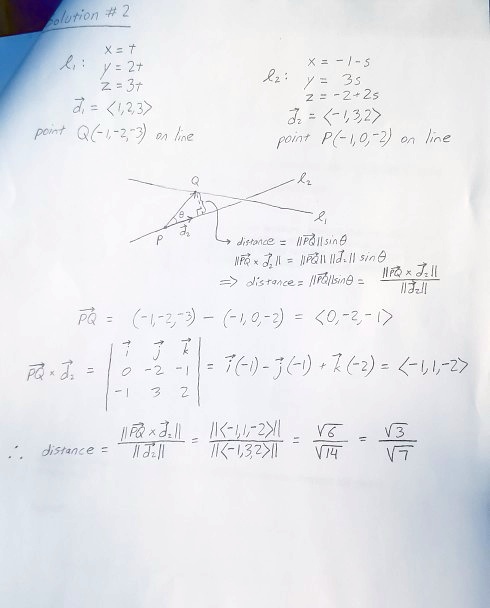 Solution #2
l₁: x = t
y = 2t
z = 3t
d⃗₁ = <1,2,3>
point Q(-1,-2,-3) on line
l₂: x = -1-s
y = 3s
z = -2+2s
d⃗₂ = <-1,3,2>
point P(-1,0,-2) on line
Q
l₂
l₁
θ
P
d⃗₂
distance = ||PQ⃗|| sinθ
||PQ⃗ × d⃗₂|| = ||PQ⃗|| ||d⃗₂|| sinθ
⇒ distance = ||PQ⃗|| sinθ = ||PQ⃗ × d⃗₂|| / ||d⃗₂||
PQ⃗ = (-1,-2,-3) - (-1,0,-2) = <0,-2,-1>
PQ⃗ × d⃗₂ = | i⃗ j⃗ k⃗ |
| 0 -2 -1 | = i⃗(-1) - j⃗(-1) + k⃗(-2) = <-1,1,-2>
| -1 3 2 |
∴ distance = ||PQ⃗ × d⃗₂|| / ||d⃗₂|| = ||<-1,1,-2>|| / ||<-1,3,2>|| = √6 / √14 = √3 / √7